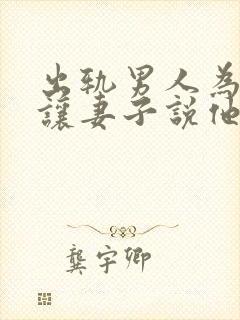 出轨男人為
讓妻子說他
龔宇卿